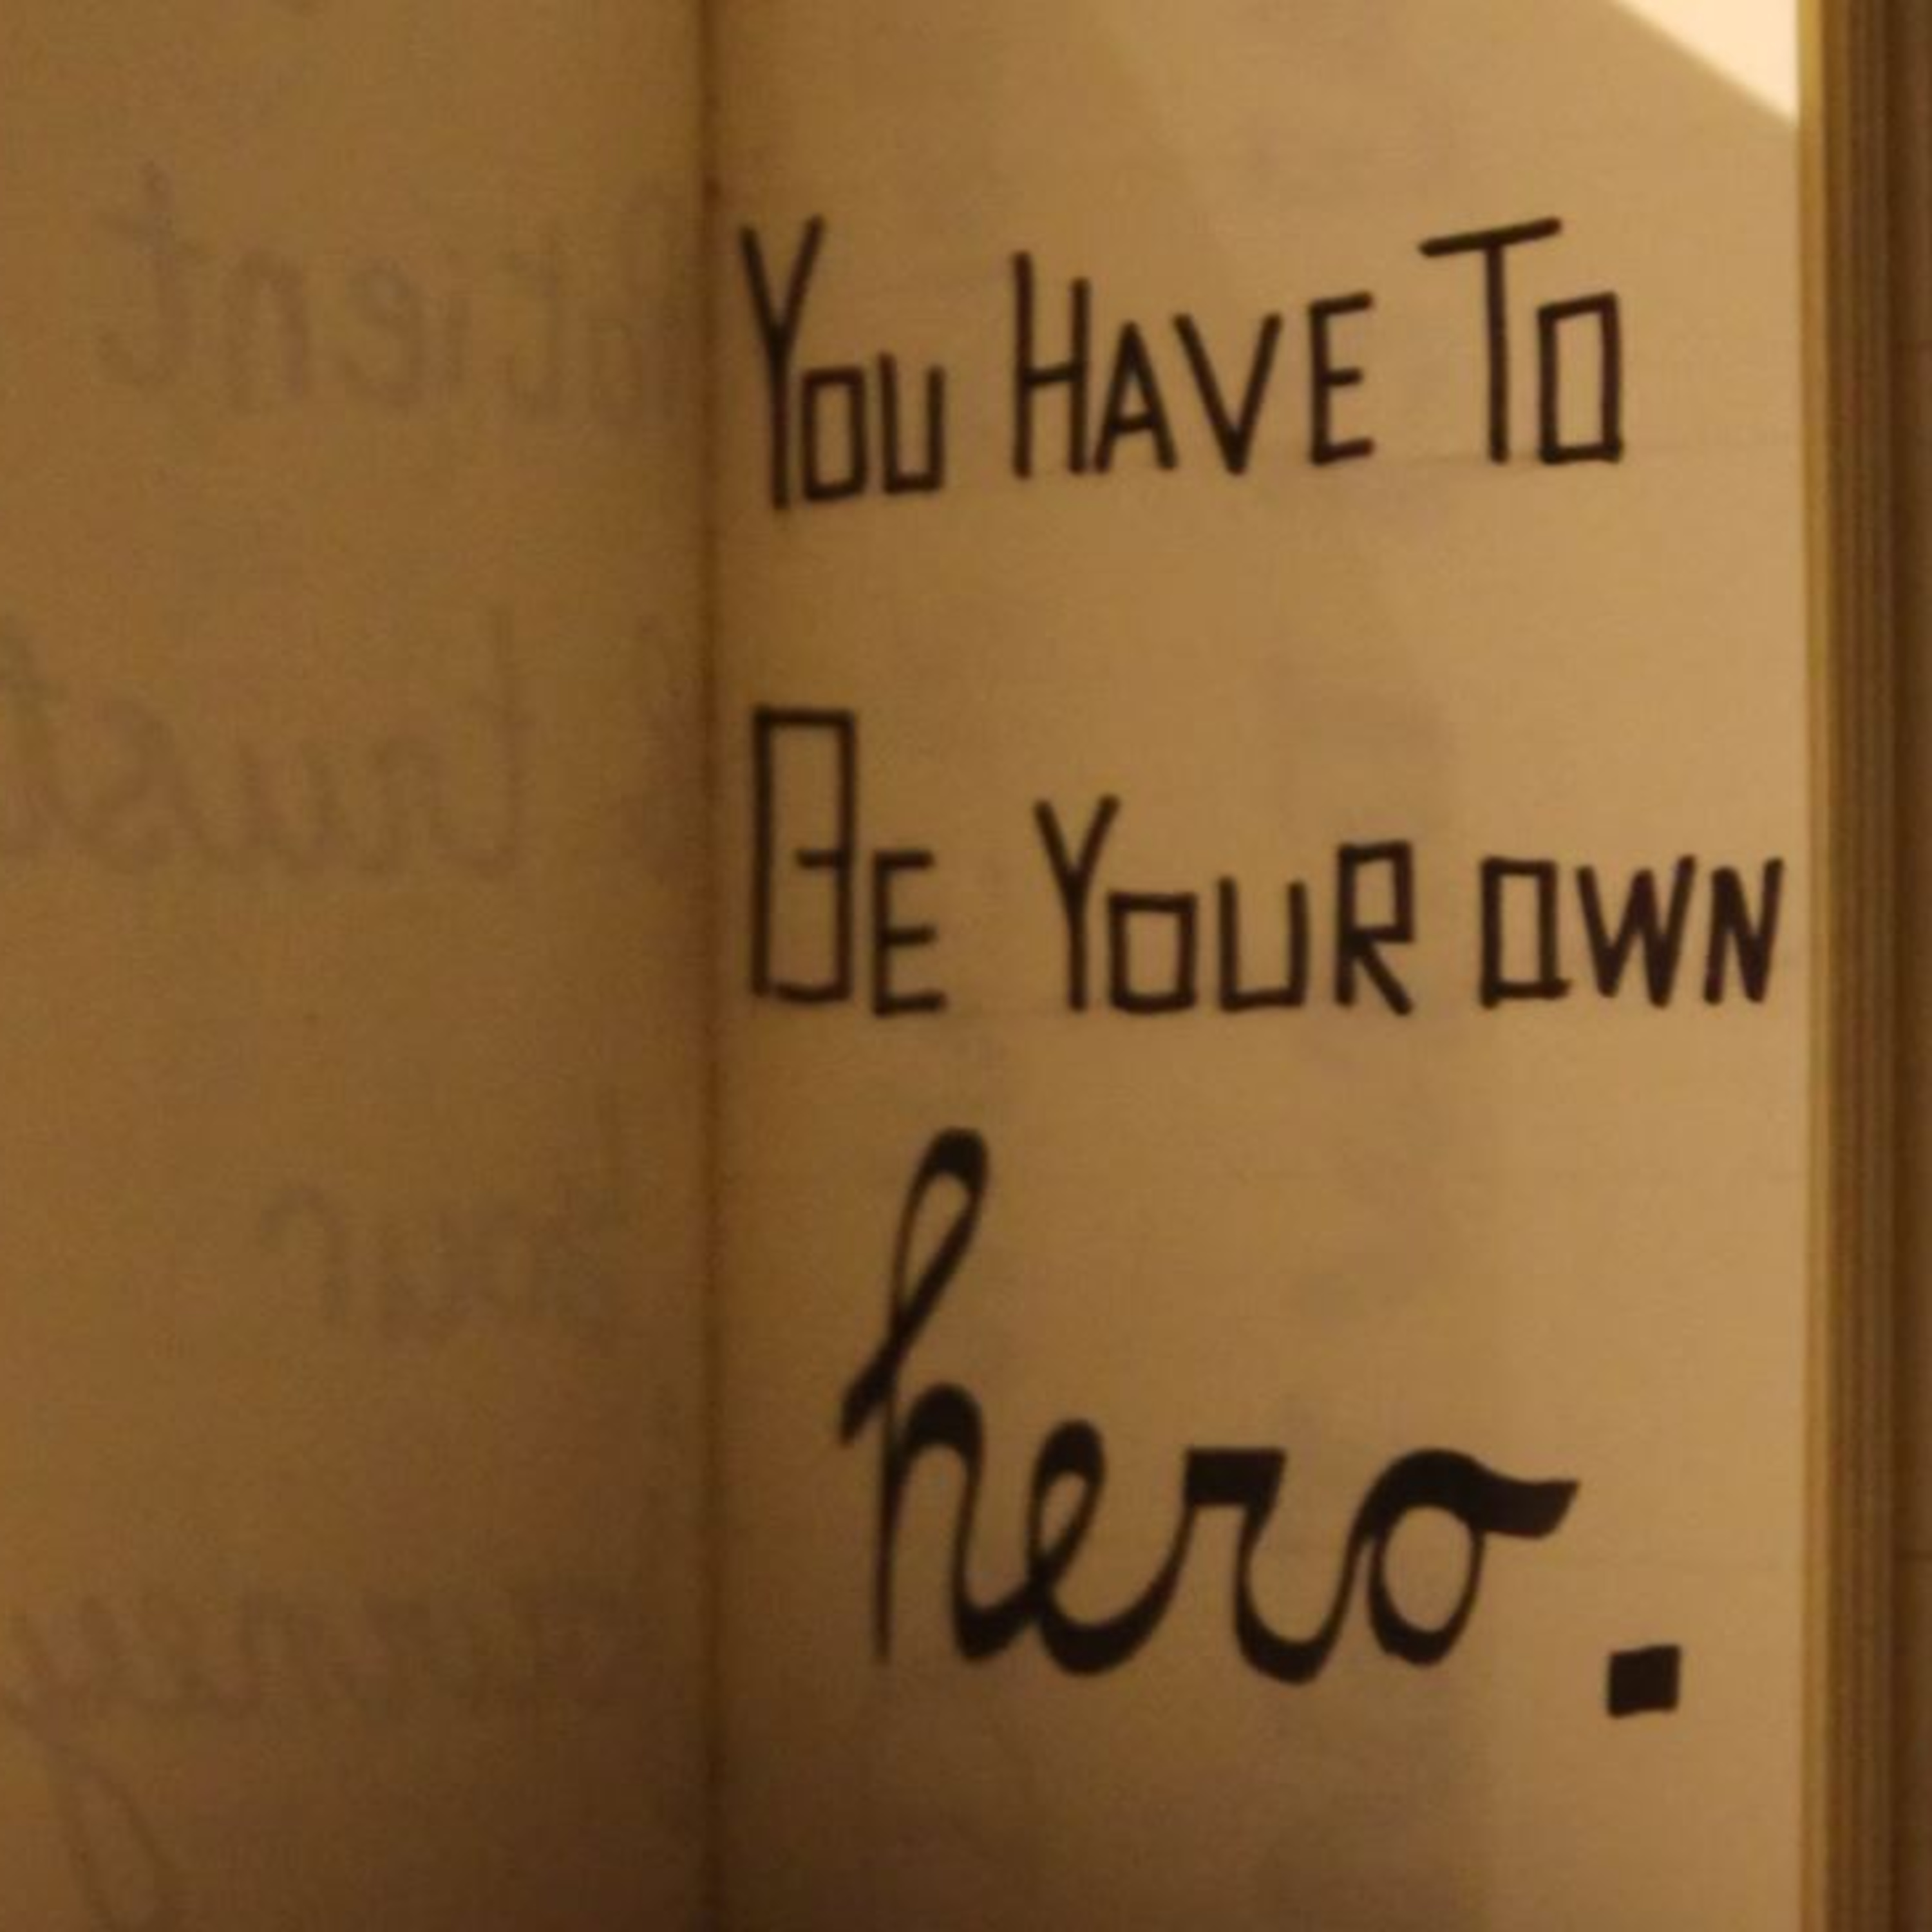 You HAVE To
BE YOUR OWN
hero.